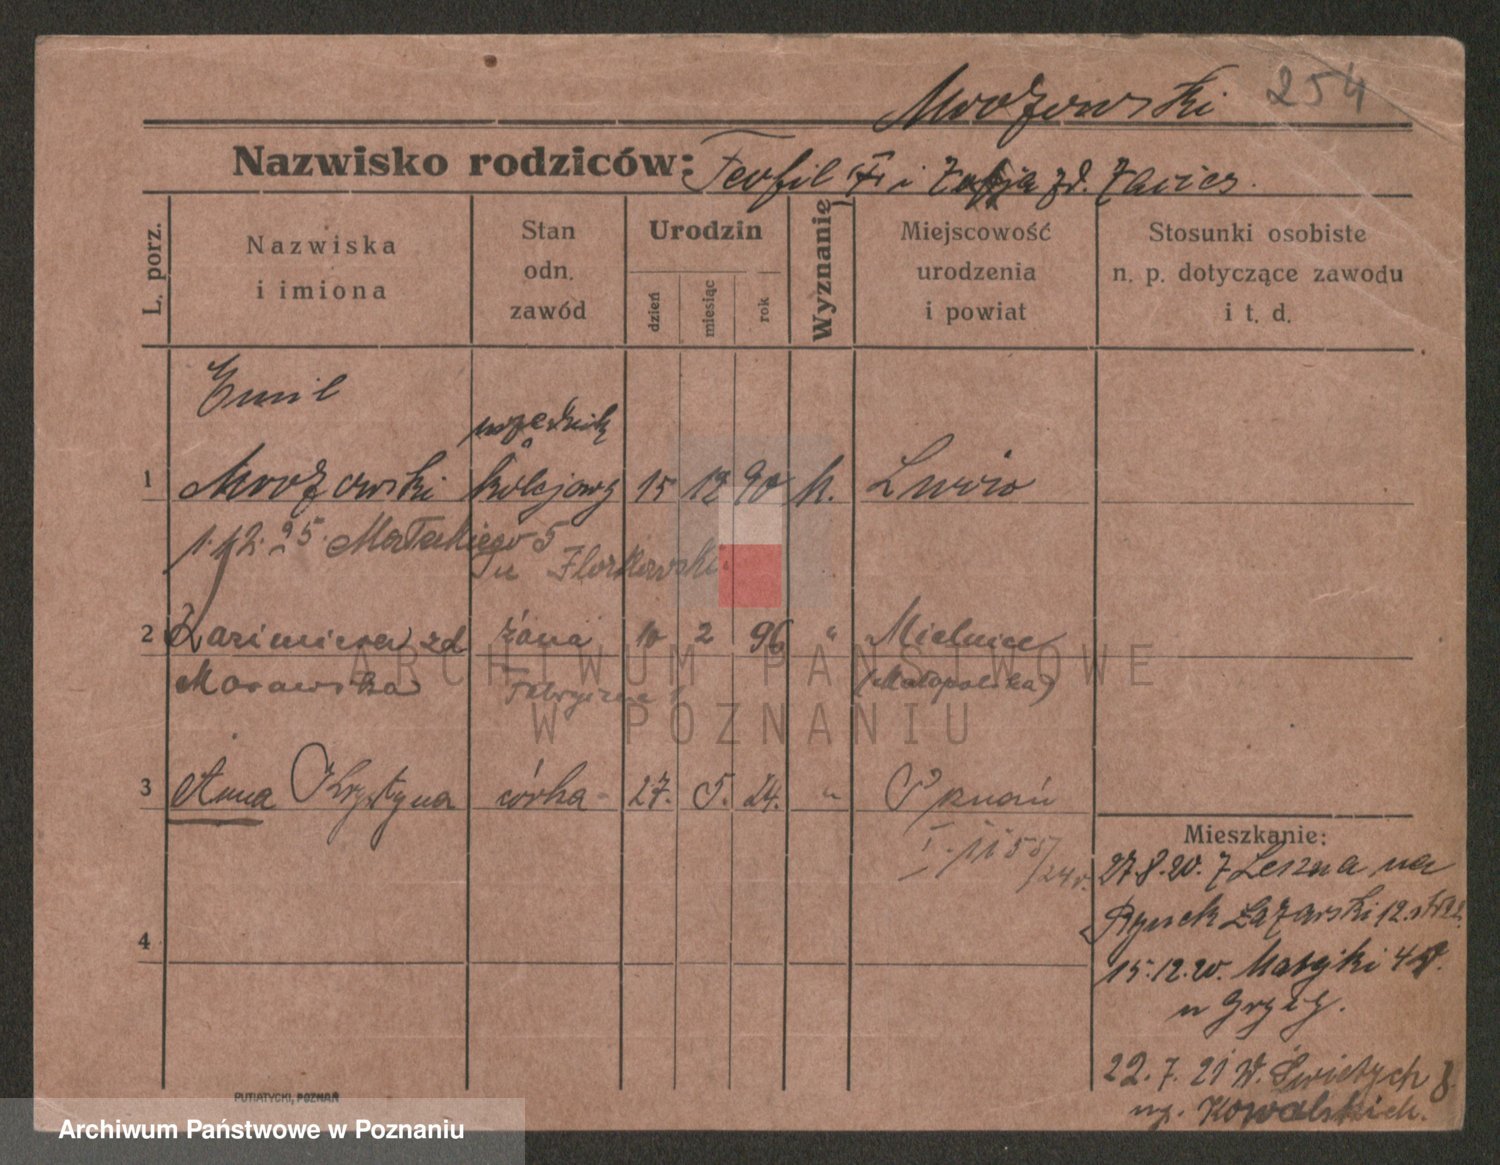 254
Mrozowski
Nazwisko rodziców: Teofil i Zofja zd.
L. porz.
Nazwiska i imiona
Stan odn. zawód
Urodzin
dzień
miesiąc
rok
Wyznanie
Miejscowość urodzenia i powiat
Stosunki osobiste n. p. dotyczące zawodu i t. d.
Emil
urzędnik
1 Mrozowski kolejowy 15 12 90 k. Lwów
1.12.25. Małeckiego 5
u
2 Kazimiera zd żona 10 2 96 " Mielnice
Morawska Fabryczna (Małopolska)
3 Anna Krystyna córka 27. 5. 24. " Poznań
4
Mieszkanie:
27.8.20. z Leszna na
Rynek Łazarski 12.
15.12.20. Matejki
u
22.7.21 W. Świętych 8.
Kowalskich.
PUTIATYCKI, POZNAŃ
ARCHIWUM PAŃSTWOWE
W POZNANIU
Archiwum Państwowe w Poznaniu